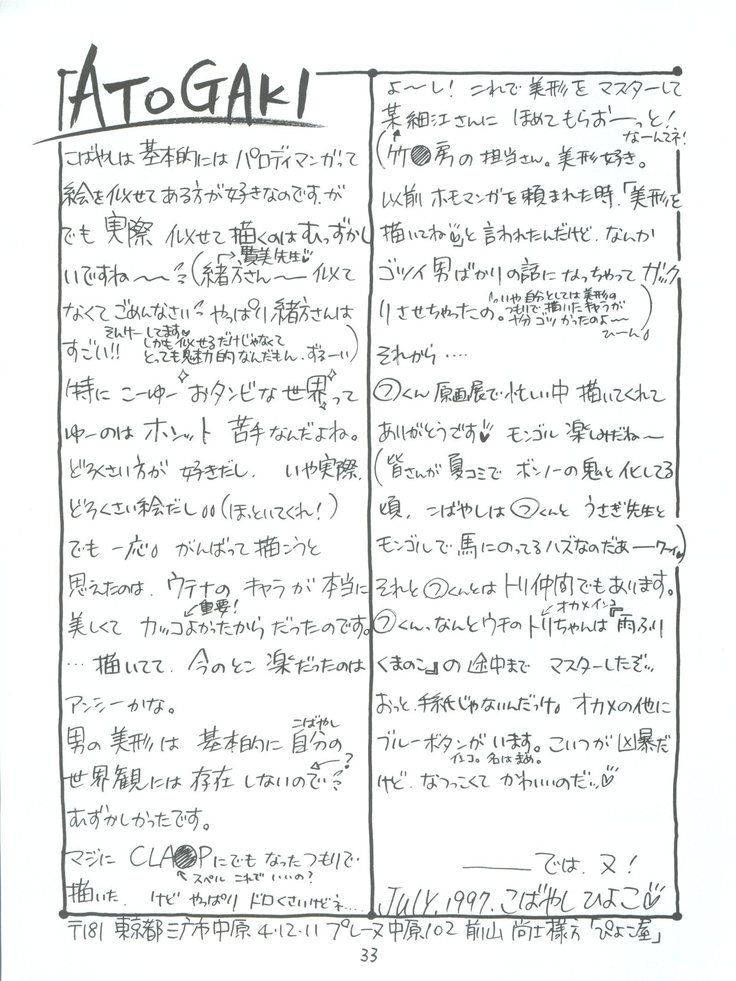 ATOGAKI
こばやしは 基本的には パロディマンガって
絵を似せてある方が好きなのですが
でも 実際 似せて描くのはむっずかし
いですね〜〜 (緒方さん〜 似せて
賢美先生♡
なくてごめんなさい やっぱり緒方さんは
そんけーしてます♡
すごい!! しかも似せるだけじゃなくて
とっても魅力的なんだもん。ずるーい)
特に こーゆー おタンビな世界って
ゆーのは ホンット 苦手なんだよね。
どろくさい方が 好きだし、いや実際、
どろくさい絵だし。。(ほっといてくれ!)
でも 一応。 がんばって描こうと
思えたのは、ウテナの キャラが 本当に
重要!
美しくて カッコよかったからだったのです。
… 描いてて、今のとこ 楽だったのは
アンシーかな。
男の美形は 基本的に 自分の
こばやし
世界観には 存在 しないので
?
むずかしかったです。
マジに CLA●Pにでも なったつもりで
スペル これでいいの?
描いた、 けど やっぱり ドロくさいけどネ…
よ〜し! これで 美形を マスターして
某 細江さんに ほめて もらおーーっと!
なーんてネ!
(竹●房の 担当さん。美形好き。
以前 ホモマンガを頼まれた時、「美形を
描いてね♡」と言われたんだけど、なんか
ゴツイ 男ばかりの話に なっちゃって ガック
リさせちゃったの。 いや自分としては美形の
つもりで、描いたキャラが
十分ゴツかったのよ〜
ひーん。)
それから ‥‥
フくん 原画展で忙しい中 描いてくれて
ありがとうです♡ モンゴル 楽しみだね〜
(皆さんが 夏コミで ボンノーの鬼と化してる
頃、 こばやしは フくんと うさぎ先生と
モンゴルで 馬にのってるハズなのだあーワーイ♡)
それと フくんとは トリ仲間でもあります。
オカメインコ
フくん、なんとウチの トリちゃんは『雨ふり
くまのこ』の 途中まで マスターしたぞ…
おっと、手紙じゃないんだっけ。オカメの他に
ブルーボタンが います。こいつが 凶暴だ
インコ。名はまめ。
けど、なつっこくて かわいいのだ…♡
―― では、又!
JULY. 1997. こばやし ひよこ♡
〒181 東京都三鷹市中原 4・12・11 プレーヌ中原102 前山 尚士様方「ぴよこ屋」
33